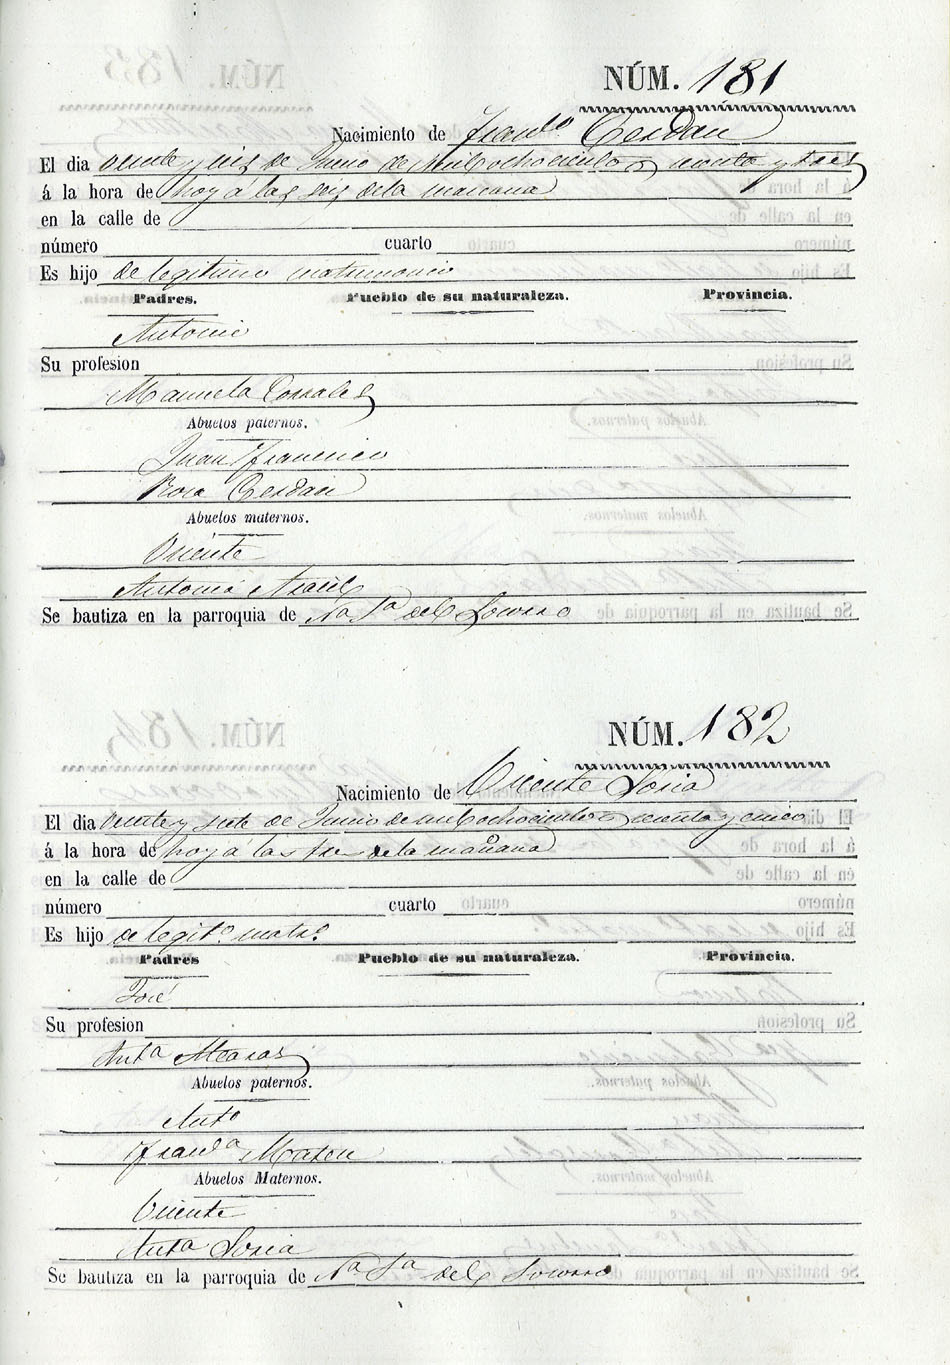 NÚM. 181
Nacimiento de Fran.co Cerdan
El dia veinte y seis de Junio de mil ochocientos y tres
á la hora de hoy á las seis de la mañana
en la calle de
número cuarto
Es hijo de legitimo matrimonio
Padres. Pueblo de su naturaleza. Provincia.
Antonio
Su profesion
Manuela Corrales
Abuelos paternos.
Juan Francisco
Rosa Cerdan
Abuelos maternos.
Vicente
Antonia
Se bautiza en la parroquia de Na. Sa. del Socorro
NÚM. 182
Nacimiento de Vicente Soria
El dia veinte y siete de Junio de mil ochocientos y cinco
á la hora de hoy á las tres de la mañana
en la calle de
número cuarto
Es hijo de legit.o matr.o
Padres Pueblo de su naturaleza. Provincia.
José
Su profesion
Ant.a
Abuelos paternos.
Ant.o
Fran.ca
Abuelos Maternos.
Vicente
Ant.a Soria
Se bautiza en la parroquia de Na. Sa. del Socorro